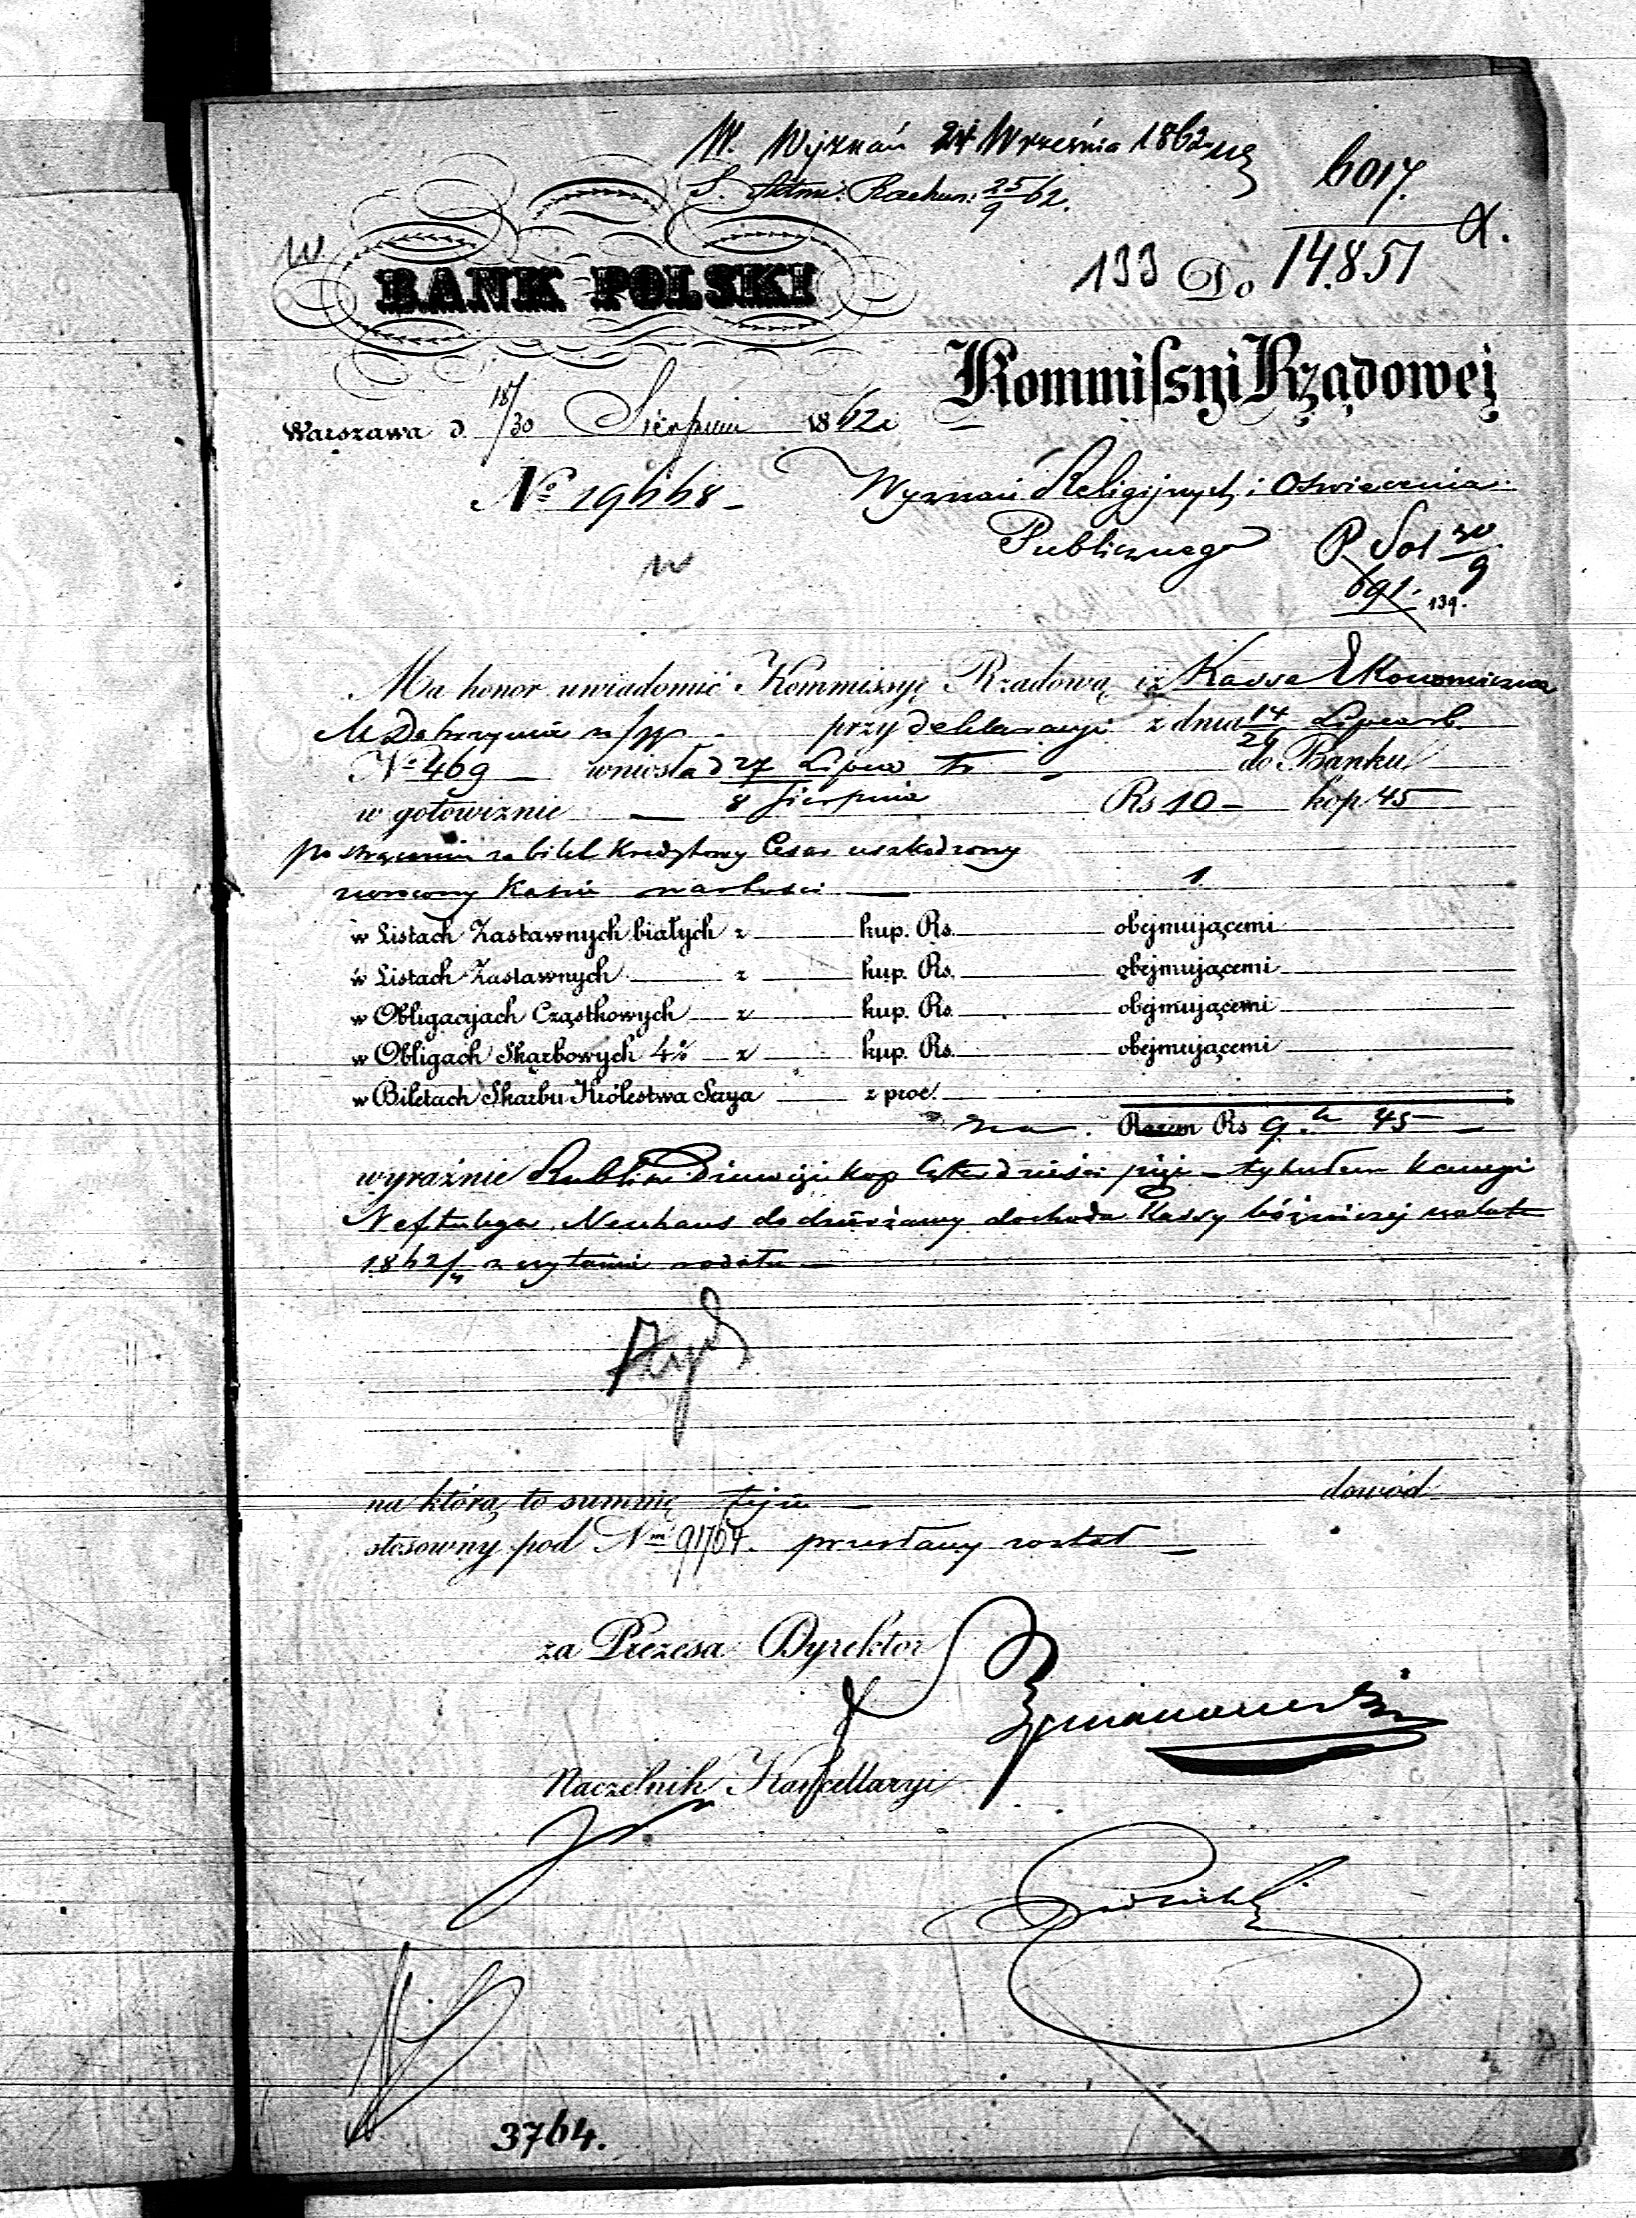 W. Wyznań 24 Września 1862
6017.
S. Rachun: 25/9 62.
133 Do 14.851
BANK POLSKI
Kommissyi Rządowej
Warszawa d. 18/30 Sierpnia 1862 r
Wyznań Religijnych i Oświecenia
No 19668
Publicznego
P. Sol 30/9
691.
139.
Ma honor uwiadomić Kommissyę Rządową, iż Kassa Ekonomiczna
M Dobrzynia n/W przy deklaracyi z dnia 14/26 Lipca r b.
No 469 wniosła d 27 Lipca do Banku
w gotowiznie 8 Sierpnia Rs 10 kop 45
po strąceniu za bilet Kredytowy Cesar uszkodzony
zwrócony Kassie wartości 1
w Listach Zastawnych białych z kup. Rs. obejmującemi
w Listach Zastawnych z kup. Rs. obejmującemi
w Obligacyach Cząstkowych z kup. Rs. obejmującemi
w Obligach Skarbowych 4% z kup. Rs. obejmującemi
w Biletach Skarbu Królestwa Serya z proc.
Razem Rs 9 k 45
wyraźnie Rubli sr. Dziewięć kop Czterdzieści pięć tytułem kaucyi
Neftulego Neuhaus do dzierżawy dochodu Kassy bóżniczej na lata
1862/4
na którą to summę dowód
stosowny pod Nm 91704. przesłany został
za Prezesa Dyrektor
Naczelnik Kancellaryi
3764.